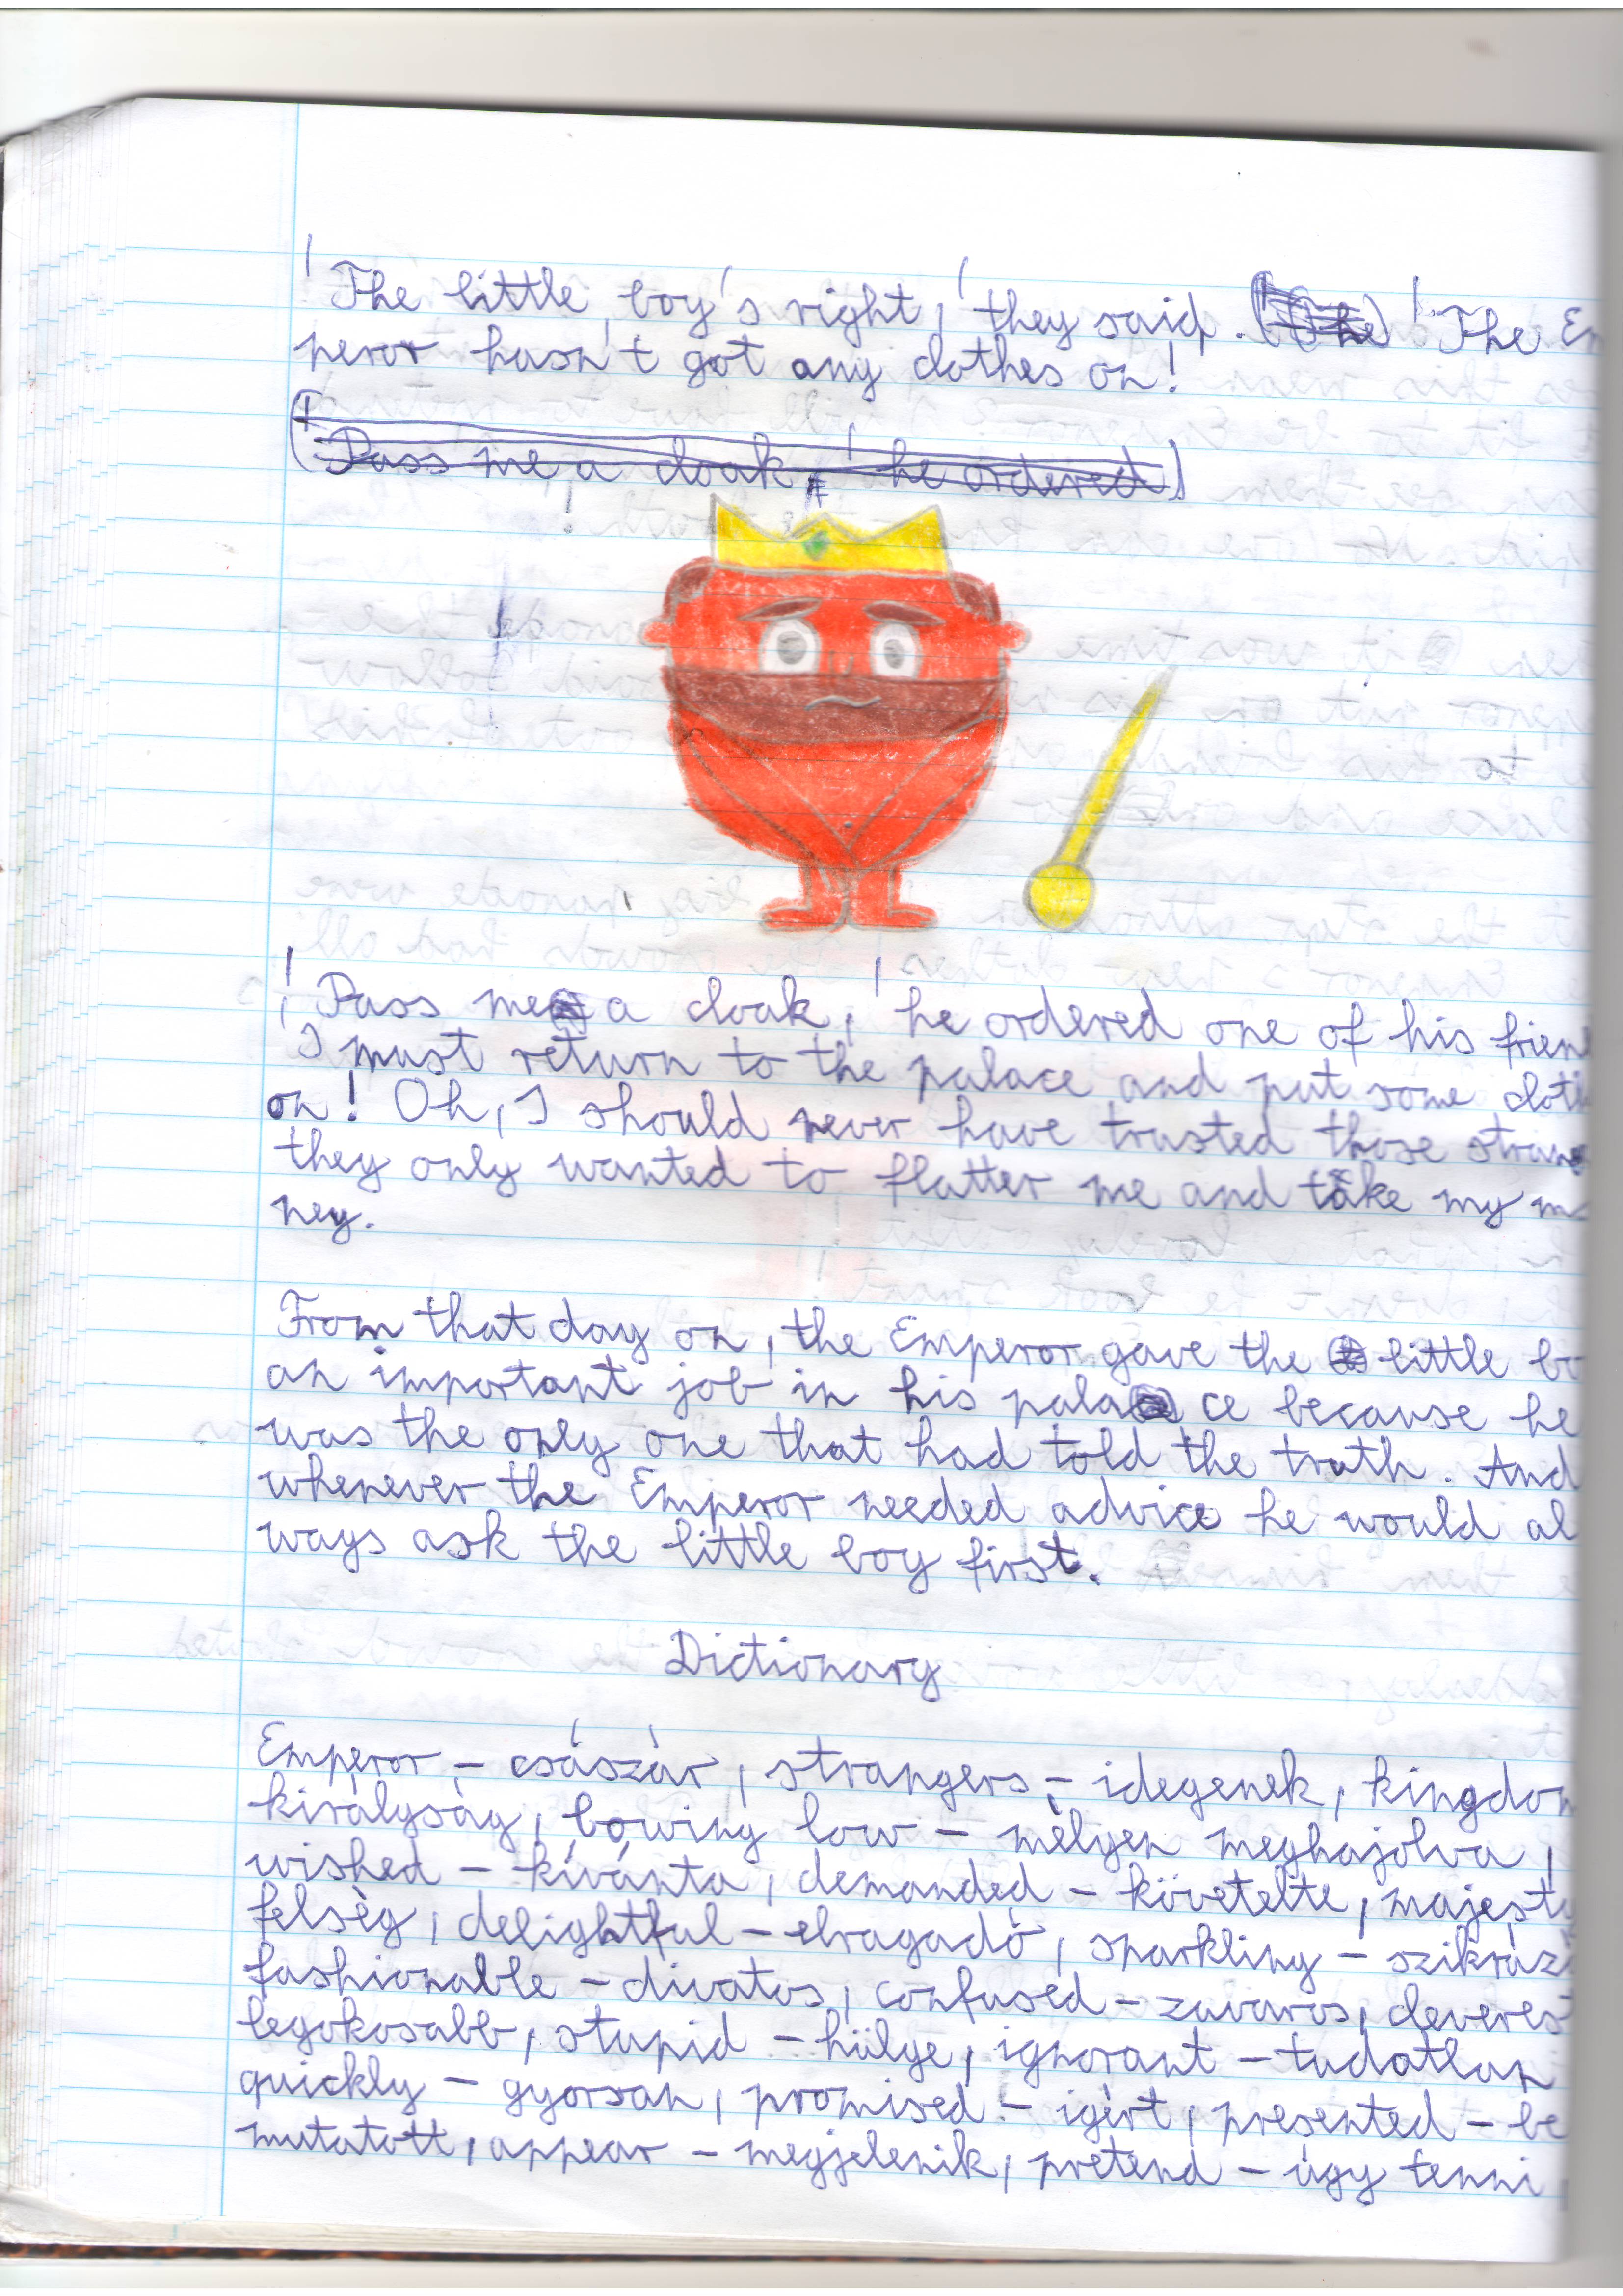 'The little boy's right,' they said. 'The Em
peror hasn't got any clothes on!
'Pass me a cloak,' he ordered
'Pass me a cloak,' he ordered one of his frien
I must return to the palace and put some cloth
on! Oh, I should never have trusted those strang
they only wanted to flatter me and take my mo
ney.
From that day on, the Emperor gave the little bo
an important job in his palace because he
was the only one that had told the truth. And
whenever the Emperor needed advice he would al
ways ask the little boy first.
Dictionary
Emperor – császár, strangers – idegenek, kingdom
királyság, bowing low – mélyen meghajolva,
wished – kívánta, demanded – követelte, majesty
felség, delightful – elragadó, sparkling – szikrázó
fashionable – divatos, confused – zavaros, cleverest
legokosabb, stupid – hülye, ignorant – tudatlan
quickly – gyorsan, promised – igért, presented – be
mutatott, appear – megjelenik, pretend – úgy tenni,